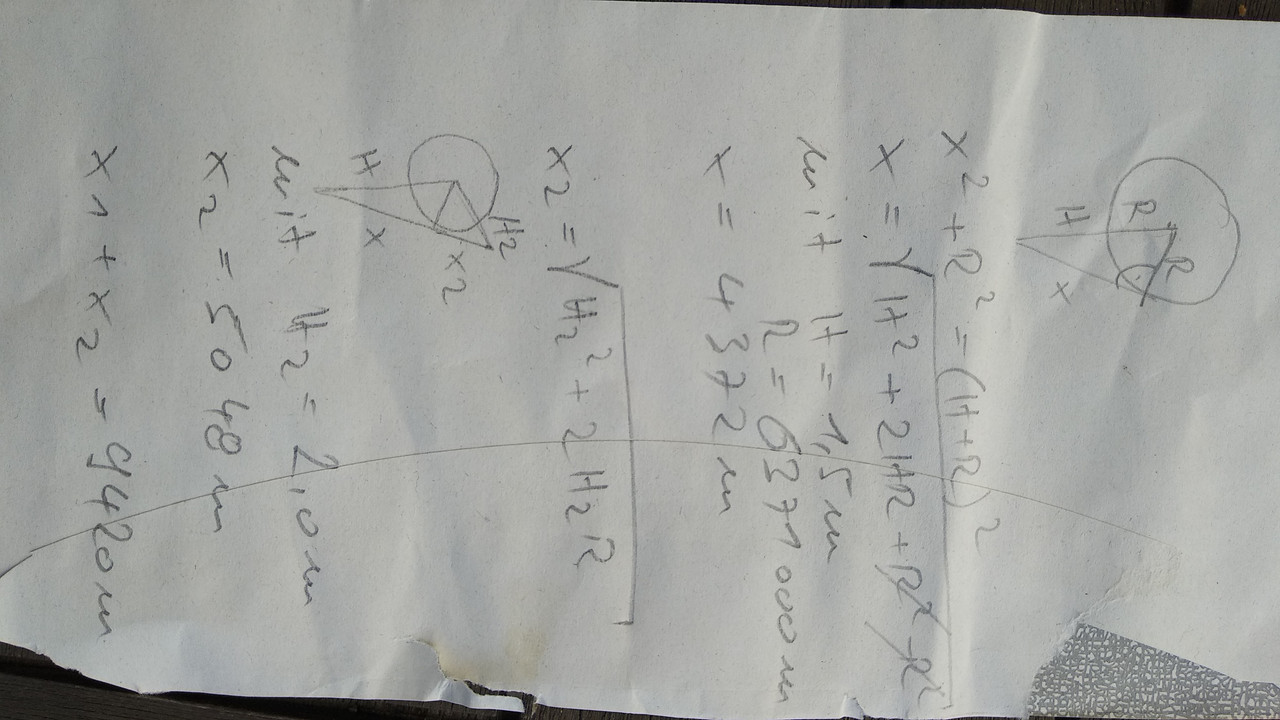 R R
H x
x2 + R² = (H+R)²
x = √H² + 2HR + R² - R²
mit H = 1,5 m
R = 6371000 m
x = 4372 m
x2 = √H2² + 2H2R
H2
H x x2
mit H2 = 2,0 m
x2 = 5048 m
x1 + x2 = 9420 m